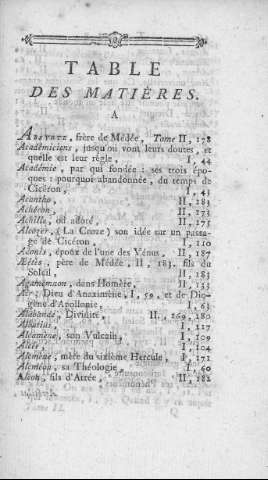 TABLE
DES MATIÈRES.
A
frère de Médée, Tome II, 178
Académiciens, jusqu'où vont leurs doutes, et
quelle est leur règle, I, 44
Académie, par qui fondée : ses trois épo-
ques : pourquoi abandonnée, du temps de
Cicéron, I,
Acantho, II, 183
Achéron, II, 173
Achille, où adoré, II, 175
(La Croze) son idée sur un passa-
ge de Cicéron, I, 110
Adonis, époux de l'une des Vénus, II, 187
Æétès, père de Médée, II, 183. fils du
Soleil, II, 183
Agamemnon, dans Homère, II, 133
Air, Dieu d'Anaximène, I, 59, et de Dio-
gène d'Apollonie, I, 63
Alabande, Divinité, II, 169, 180
Albutius, I, 117
Alcamène, son Vulcain, I, 109
Alcée, I, 104
Alcmène, mère du sixième Hercule, I, 171
Alcméon, sa Théologie, I, 60
Alcon, fils d'Atrée, II, 182
Tome II. Q